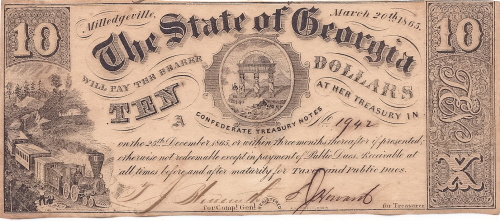 Milledgeville, March 20th 1865.
10 The State of Georgia 10
WILL PAY THE BEARER
TEN DOLLARS
AT HER TREASURY IN
A CONFEDERATE TREASURY NOTES
No 1942
on the 25th December 1865, or within three months thereafter if presented;
otherwise not redeemable except in payment of Public Dues. Receivable at
all times before and after maturity for Taxes and Public Dues.
For Comp! Gen! for Treasurer
X